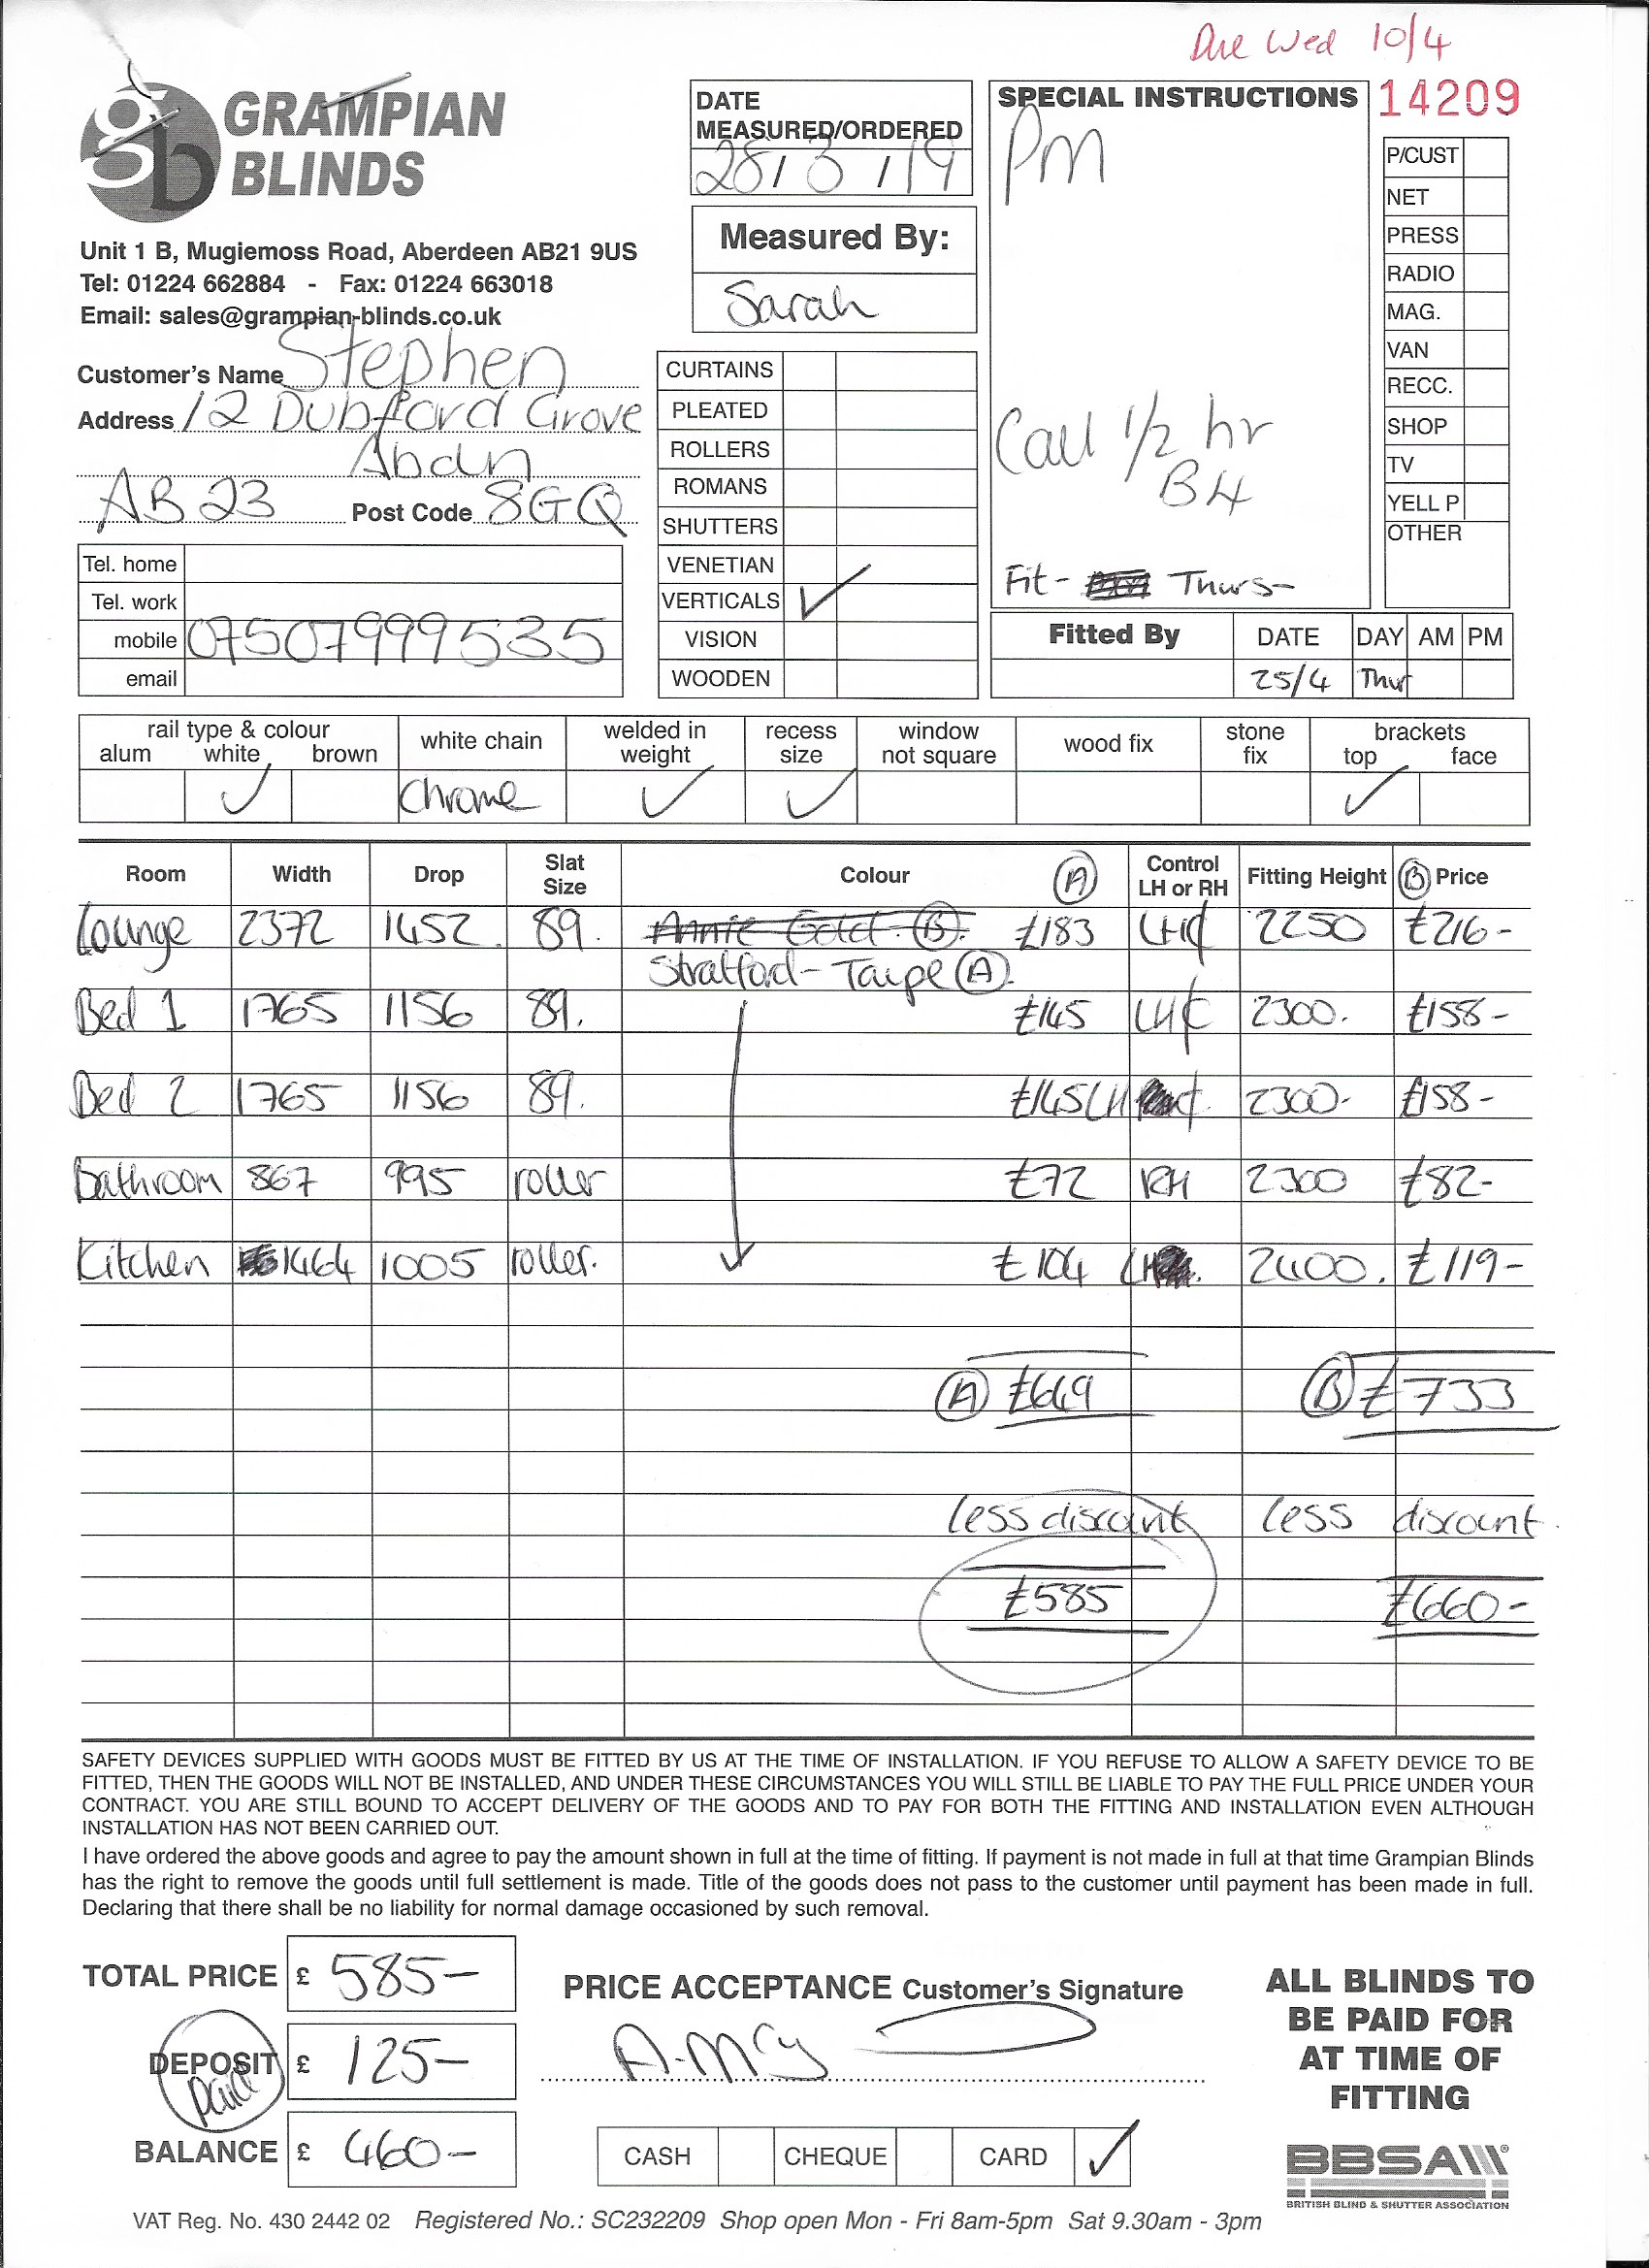 Due Wed 10/4
14209
GRAMPIAN
BLINDS
Unit 1 B, Mugiemoss Road, Aberdeen AB21 9US
Tel: 01224 662884 - Fax: 01224 663018
Email: sales@grampian-blinds.co.uk
DATE
MEASURED/ORDERED
28/3/19
Measured By:
Sarah
SPECIAL INSTRUCTIONS
Pm
Call 1/2 hr
B4
Fit- Thurs-
P/CUST
NET
PRESS
RADIO
MAG.
VAN
RECC.
SHOP
TV
YELL P
OTHER
Customer's Name Stephen
Address 12 Dubford Grove
Abdn
AB23 Post Code 8GQ
Tel. home
Tel. work
mobile 07507999535
email
CURTAINS
PLEATED
ROLLERS
ROMANS
SHUTTERS
VENETIAN
VERTICALS ✓
VISION
WOODEN
Fitted By DATE DAY AM PM
25/4 Thur
rail type & colour
alum white brown
white chain
welded in weight
recess size
window not square
wood fix
stone fix
brackets
top face
✓ Chrome ✓ ✓ ✓
Room Width Drop Slat Size Colour (A) Control LH or RH Fitting Height (B) Price
Lounge 2372 1452 89. £183 LH 2250 £216-
Stratford - Taupe (A)
Bed 1 1765 1156 89. £145 LH 2300. £158-
Bed 2 1765 1156 89. £145 LH 2300- £158-
Bathroom 867 995 roller £72 RH 2300 £82-
Kitchen 1464 1005 roller. £104 LH 2400. £119-
(A) £649 (B) £733
less discount less discount
£585 £660-
SAFETY DEVICES SUPPLIED WITH GOODS MUST BE FITTED BY US AT THE TIME OF INSTALLATION. IF YOU REFUSE TO ALLOW A SAFETY DEVICE TO BE
FITTED, THEN THE GOODS WILL NOT BE INSTALLED, AND UNDER THESE CIRCUMSTANCES YOU WILL STILL BE LIABLE TO PAY THE FULL PRICE UNDER YOUR
CONTRACT. YOU ARE STILL BOUND TO ACCEPT DELIVERY OF THE GOODS AND TO PAY FOR BOTH THE FITTING AND INSTALLATION EVEN ALTHOUGH
INSTALLATION HAS NOT BEEN CARRIED OUT.
I have ordered the above goods and agree to pay the amount shown in full at the time of fitting. If payment is not made in full at that time Grampian Blinds
has the right to remove the goods until full settlement is made. Title of the goods does not pass to the customer until payment has been made in full.
Declaring that there shall be no liability for normal damage occasioned by such removal.
TOTAL PRICE £ 585-
DEPOSIT £ 125-
paid
BALANCE £ 460-
PRICE ACCEPTANCE Customer's Signature
CASH CHEQUE CARD ✓
ALL BLINDS TO
BE PAID FOR
AT TIME OF
FITTING
BBSA
BRITISH BLIND & SHUTTER ASSOCIATION
VAT Reg. No. 430 2442 02 Registered No.: SC232209 Shop open Mon - Fri 8am-5pm Sat 9.30am - 3pm